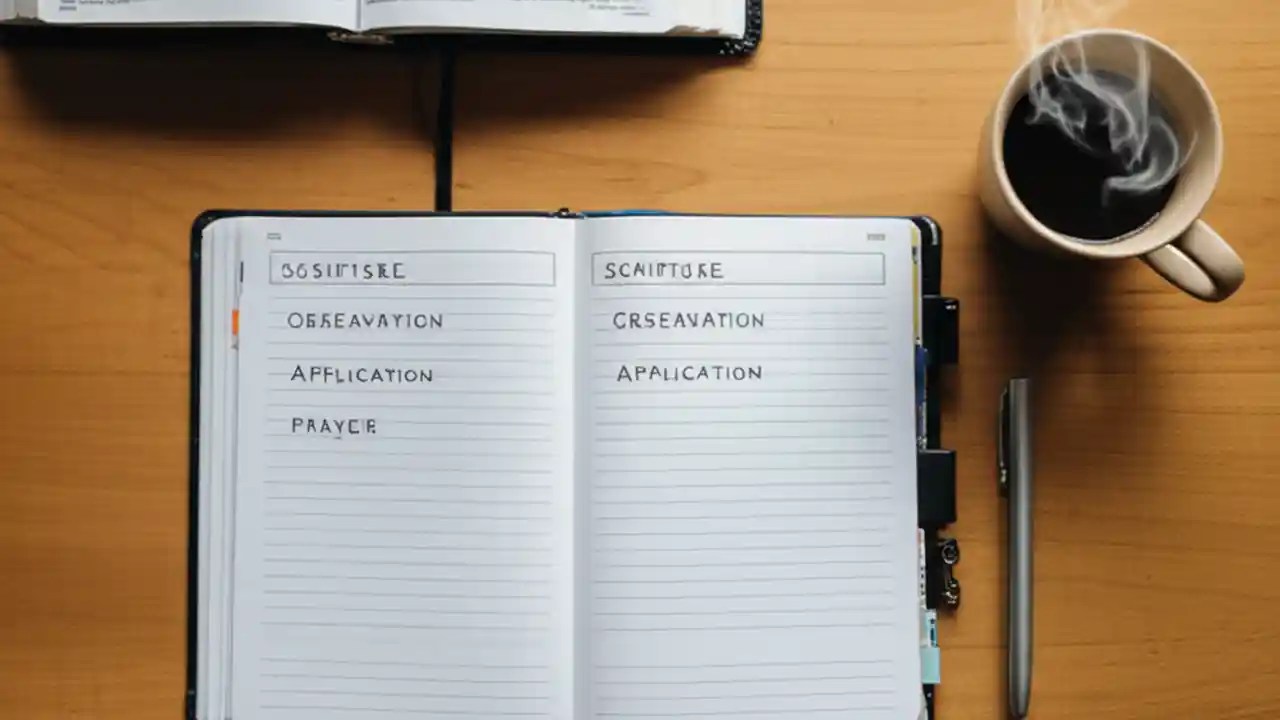 SCRIPTURE
OBSEAVATION
APPLICATION
PRAYER
SCRIPTURE
CRSEAVATION
APALICATION